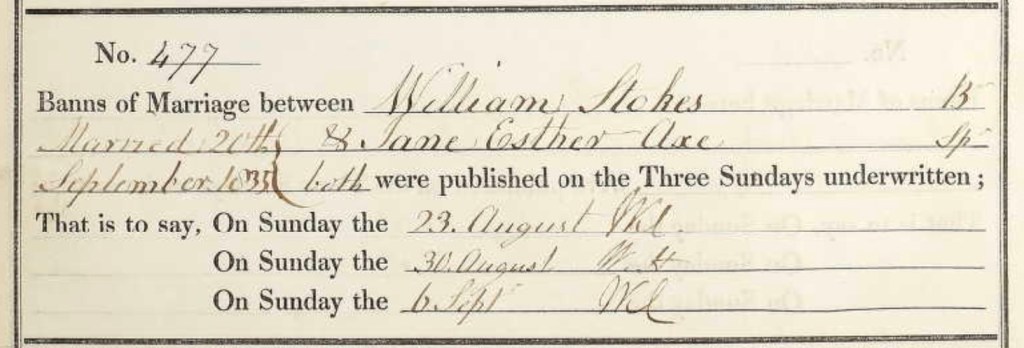 No. 477
Banns of Marriage between William Stokes Br
Married 20th & Jane Esther Axe Sp
September 1835 both were published on the Three Sundays underwritten;
That is to say, On Sunday the 23. August
On Sunday the 30. August
On Sunday the 6 Sept